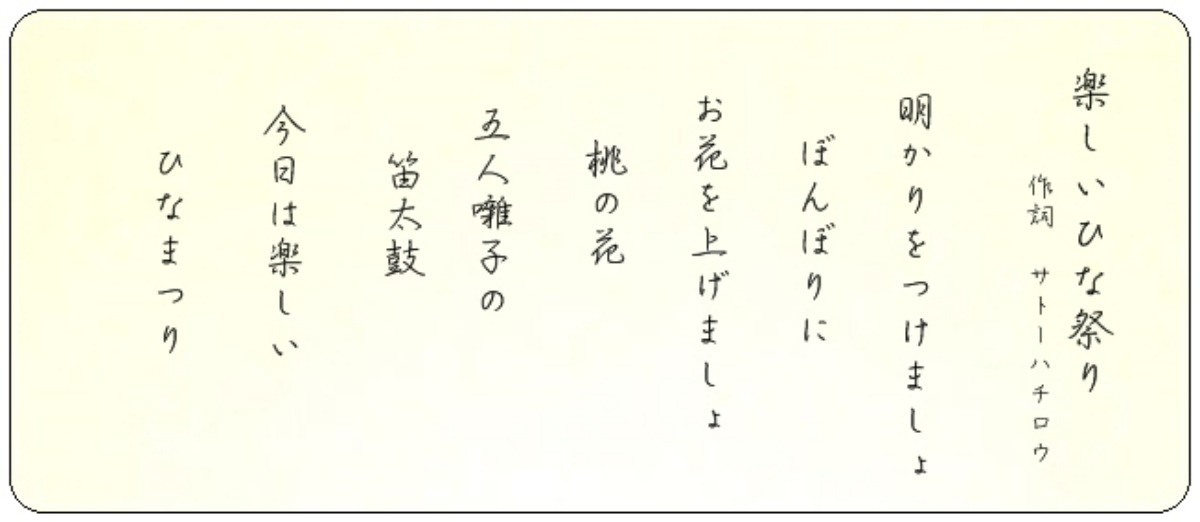 楽しいひな祭り
作詞 サトーハチロウ
明かりをつけましょ
ぼんぼりに
お花を上げましょ
桃の花
五人囃子の
笛太鼓
今日は楽しい
ひなまつり